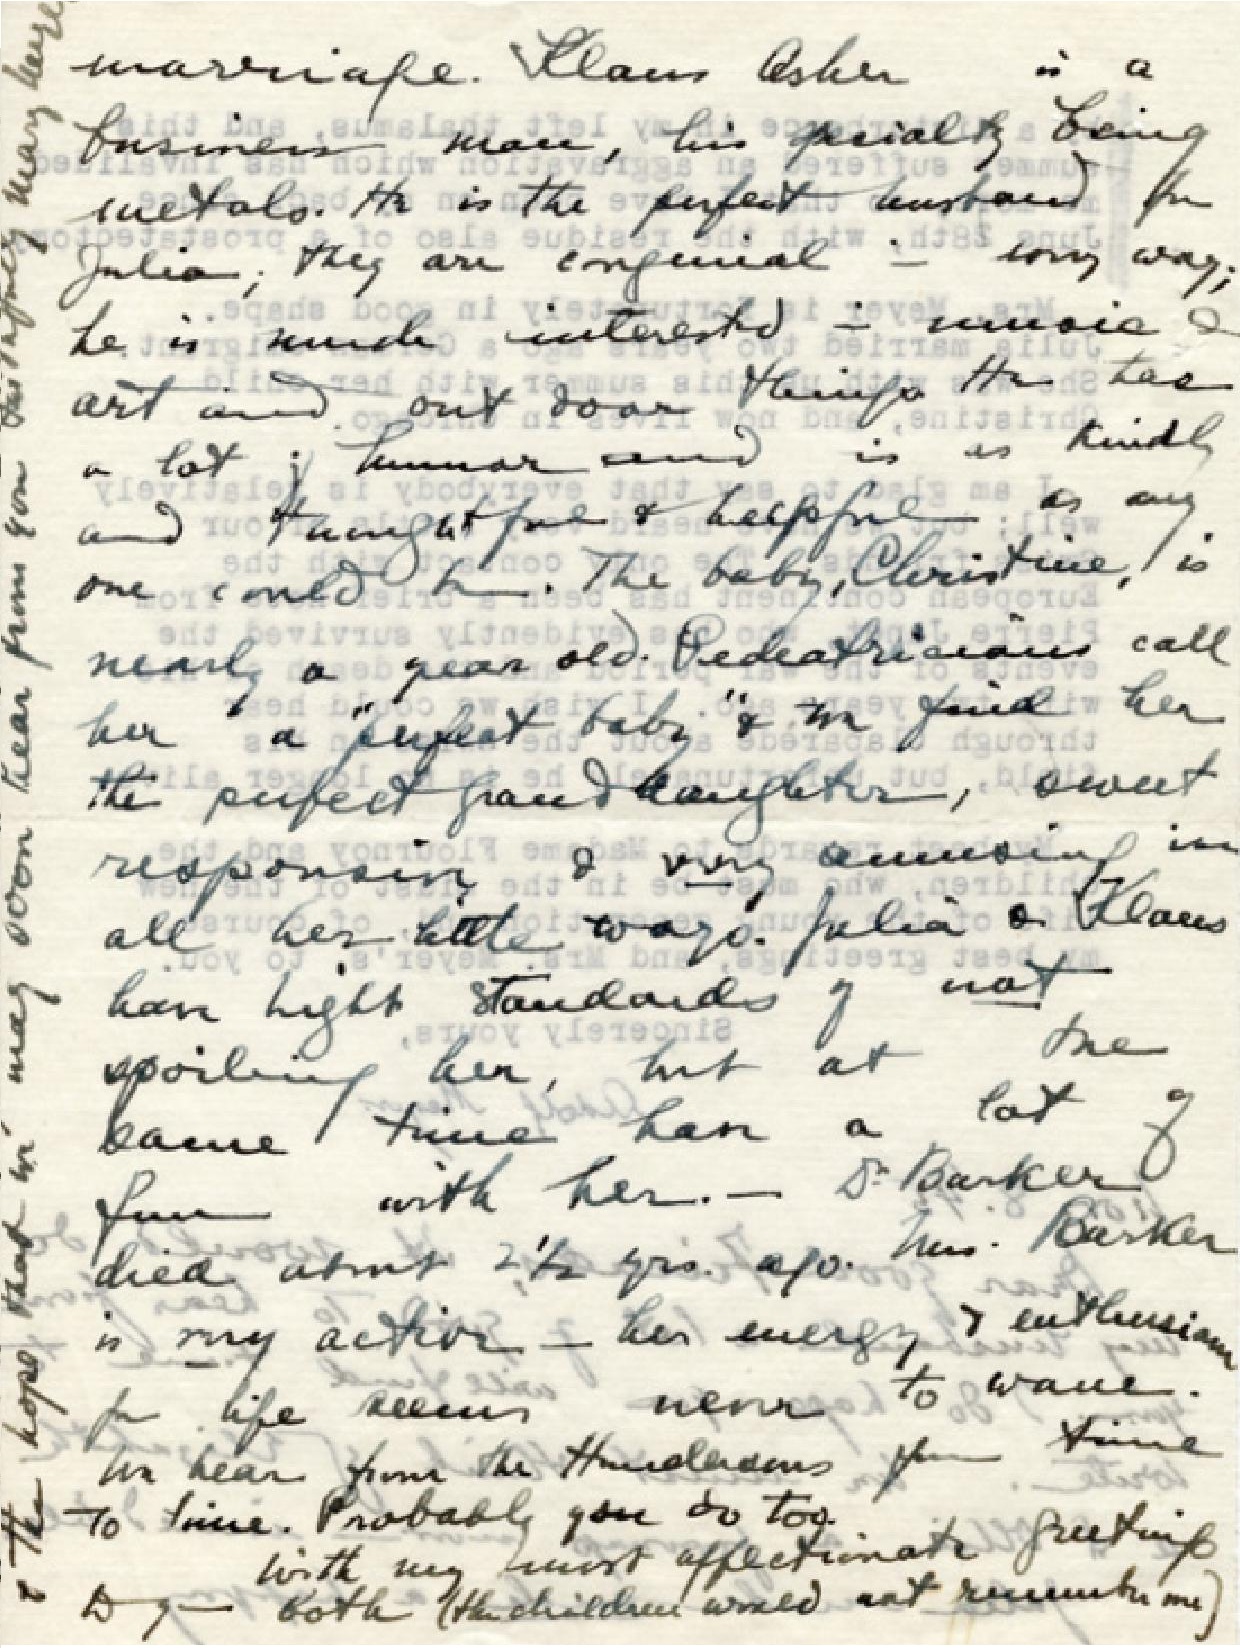 marriage. Klaus Asher is a
business man, his specialty being
metals. He is the perfect husband for
Julia; they are congenial in every way;
he is much interested in music &
art and out door things He has
a lot of humor and is as kindly
and thoughtful & helpful as any
one could be. The baby, Christine, is
nearly a year old. Pediatricians call
her "a perfect baby" & we find her
the perfect granddaughter, sweet
responsive & very amusing in
all her little ways. Julia & Klaus
have hight standards of not
spoiling her, but at the
same time have a lot of
fun with her. — Dr Barker
died about 2 1/2 yrs. ago. Mrs. Barker
is very active — her energy & enthusiasm
for life seems never to wane.
We hear from the Hendersons from time
to time. Probably you do too.
With my most affectionate greetings
to you both (the children would not remember me)
& the hope that we may soon hear from you Mary Meyer